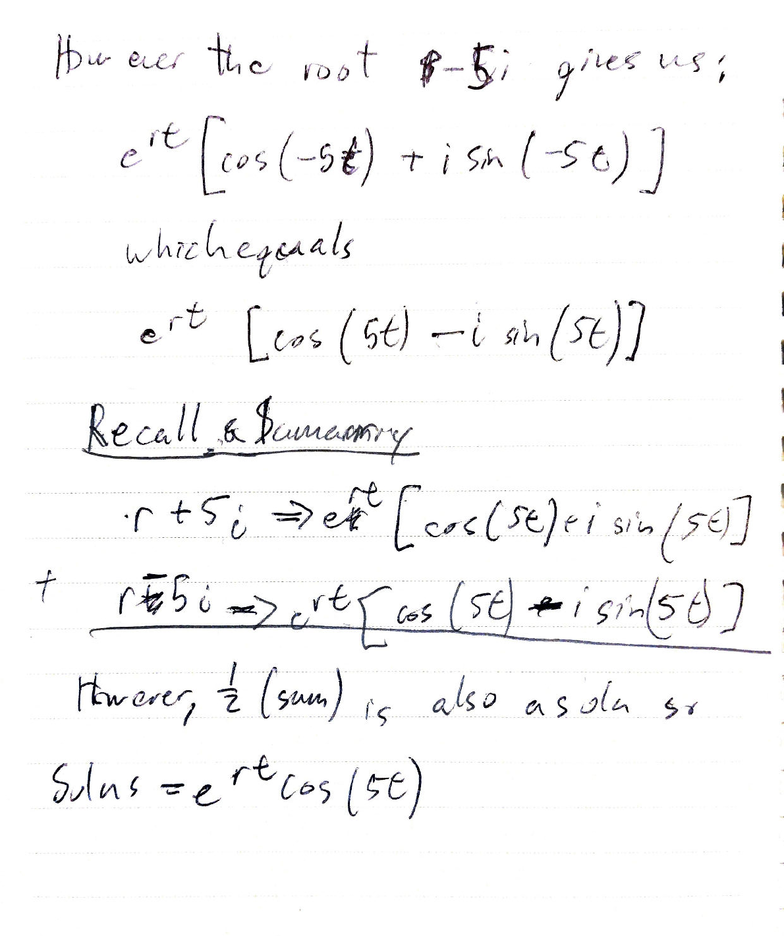 However the root r-5i gives us;
e^rt [cos(-5t) + i sin (-5t)]
which equals
e^rt [cos (5t) - i sin (5t)]
Recall & Summary
r + 5i => e^rt [cos(5t) + i sin (5t)]
+ r - 5i => e^rt [cos (5t) - i sin(5t)]
However, 1/2 (sum) is also a soln so
Solns = e^rt cos (5t)